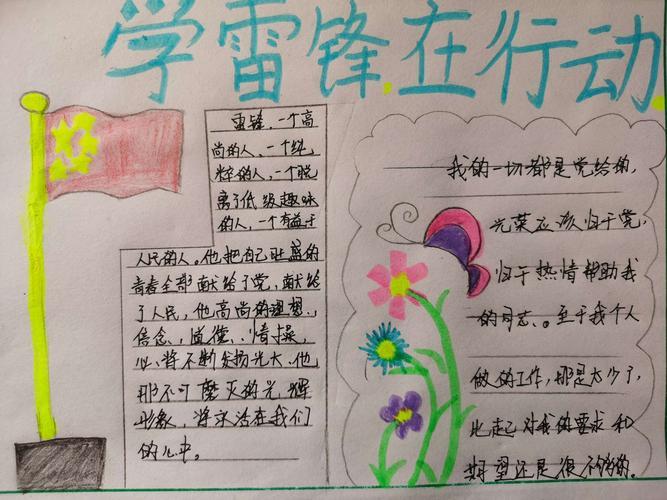 学雷锋,在行动
雷锋,一个高
尚的人、一个纯
粹的人、一个脱
离了低级趣味
的人,一个有益于
人民的人。他把自己旺盛的
青春全部献给了党,献给
了人民,他高尚的理想、
信念、道德、情操,
必将不断发扬光大,他
那不可磨灭的光辉
形象,将永活在我们
的心中。
我的一切都是党给的,
光荣应该归于党,
归于热情帮助我
的同志、。至于我个人
做的工作,那是太少了,
比起对我的要求和
期望还是很不够的。